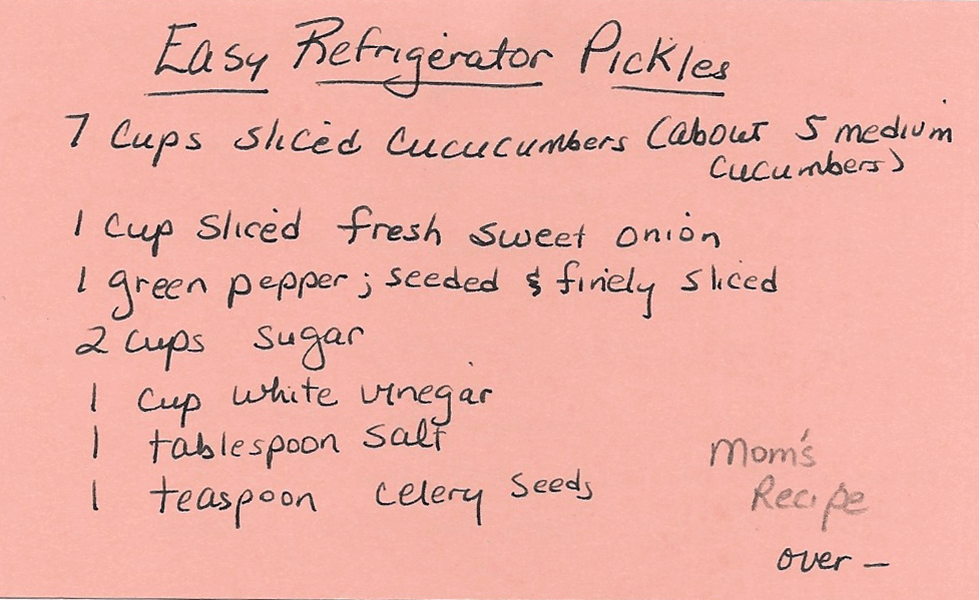 Easy Refrigerator Pickles
7 Cups sliced cucucumbers (about 5 medium
cucumbers)
1 cup sliced fresh sweet onion
1 green pepper; seeded & finely sliced
2 cups sugar
1 cup white vinegar
1 tablespoon salt
1 teaspoon celery seeds
Mom's
Recipe
over –